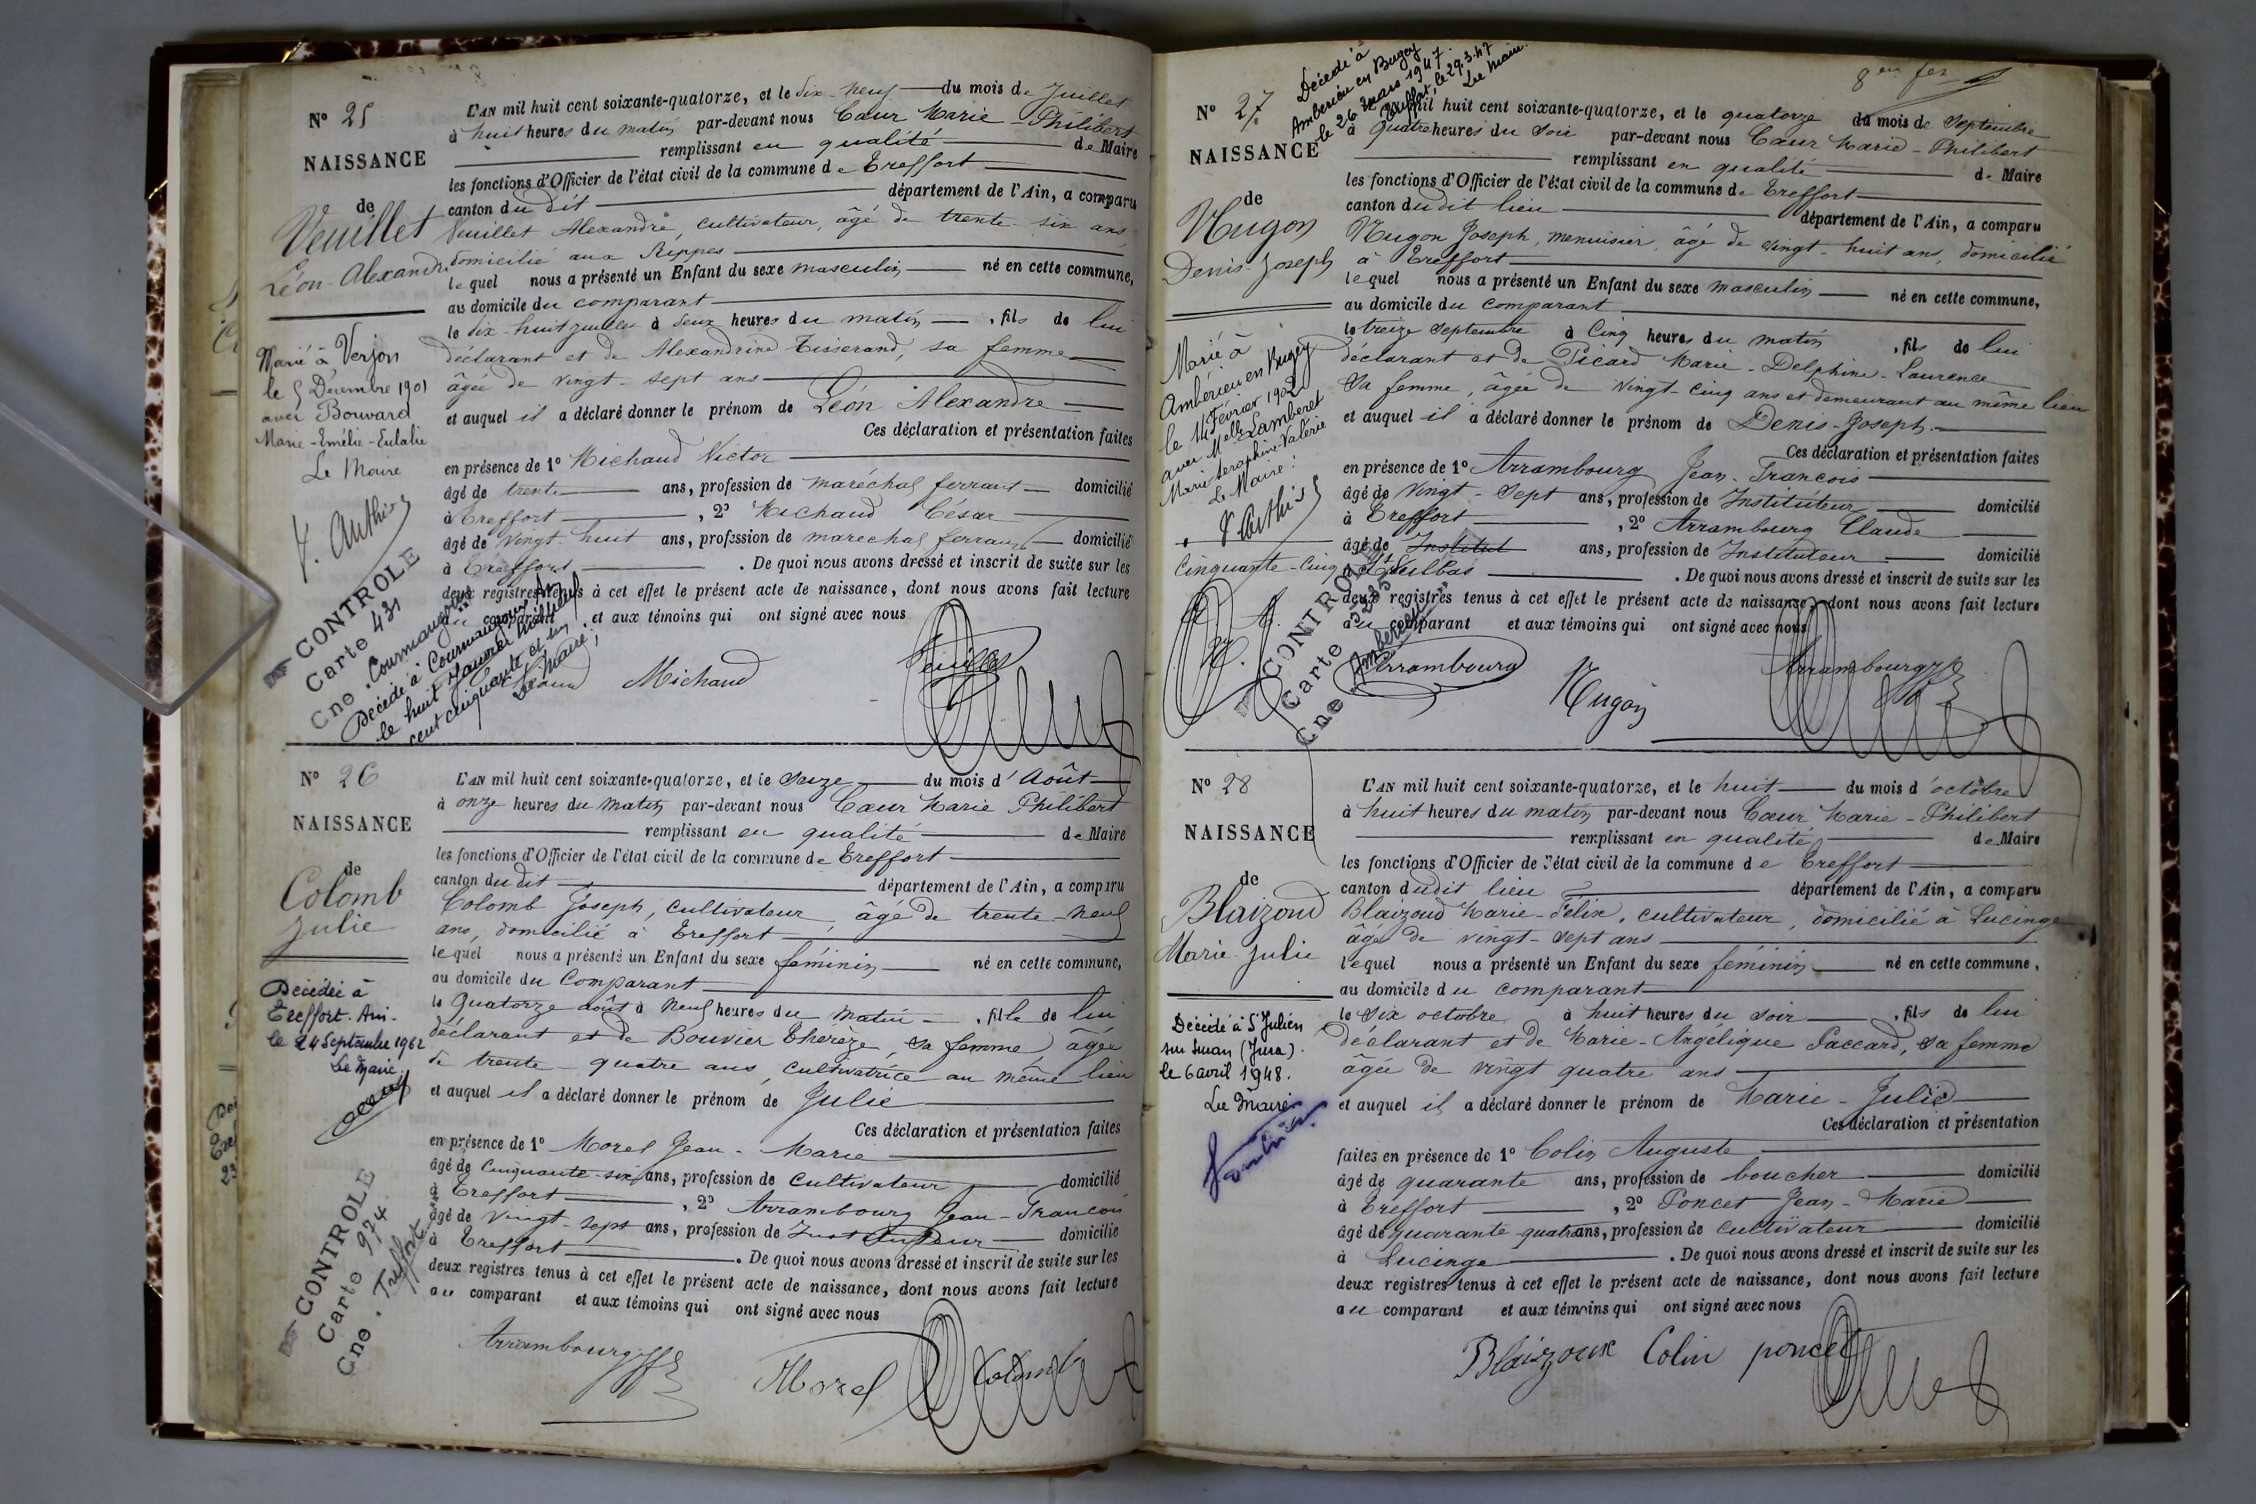 N° 25
NAISSANCE
de
Veuillet
Léon-Alexandre
Marié à Verjon
le 5 Décembre 1901
avec Bouvard
Marie-Emélie-Eulalie
Le Maire
CONTROLE
Carte 431
Cne. Courmangoux
Décédé à Courmangoux
le huit janvier mil neuf
cent cinquante et un
Le Maire;
L'AN mil huit cent soixante-quatorze, et le dix-neuf du mois de Juillet
à huit heures du matin par-devant nous Cœur Marie-Philibert
remplissant en qualité de Maire
les fonctions d'Officier de l'état civil de la commune de Treffort
canton du dit département de l'Ain, a comparu
Veuillet Alexandre, cultivateur, âgé de trente-six ans
domicilié aux Rippes
lequel nous a présenté un Enfant du sexe masculin né en cette commune,
au domicile du comparant
le dix-huit juillet à deux heures du matin, fils de lui
déclarant et de Alexandrine Tisserand, sa femme
âgée de vingt-sept ans
et auquel il a déclaré donner le prénom de Léon Alexandre
Ces déclaration et présentation faites
en présence de 1° Michaud Victor
âgé de trente ans, profession de maréchal ferrant domicilié
à Treffort, 2° Michaud César
âgé de vingt-huit ans, profession de maréchal ferrant domicilié
à Treffort. De quoi nous avons dressé et inscrit de suite sur les
deux registres tenus à cet effet le présent acte de naissance, dont nous avons fait lecture
au comparant et aux témoins qui ont signé avec nous
Michaud
Veuillet
N° 26
NAISSANCE
de
Colomb
Julie
Décédée à
Treffort. Ain.
le 24 Septembre 1962
Le Maire.
CONTROLE
Carte 974
Cne. Treffort
L'AN mil huit cent soixante-quatorze, et le seize du mois d'Août
à onze heures du matin par-devant nous Cœur Marie Philibert
remplissant en qualité de Maire
les fonctions d'Officier de l'état civil de la commune de Treffort
canton du dit département de l'Ain, a comparu
Colomb Joseph, cultivateur, âgé de trente-neuf
ans, domicilié à Treffort
lequel nous a présenté un Enfant du sexe féminin né en cette commune,
au domicile du comparant
le quatorze août à neuf heures du matin, fille de lui
déclarant et de Bouvier Thérèze, sa femme, âgée
de trente-quatre ans, cultivatrice au même lieu
et auquel il a déclaré donner le prénom de Julie
Ces déclaration et présentation faites
en présence de 1° Morel Jean-Marie
âgé de cinquante-six ans, profession de cultivateur domicilié
à Treffort, 2° Arrambourg Jean-François
âgé de vingt-sept ans, profession de Instituteur domicilié
à Treffort. De quoi nous avons dressé et inscrit de suite sur les
deux registres tenus à cet effet le présent acte de naissance, dont nous avons fait lecture
au comparant et aux témoins qui ont signé avec nous
Arrambourg
Morel
Colomb
Décédé à
Ambérieu en Bugey
le 26 mars 1947.
Treffort, le 29.3.47
Le Maire.
N° 27
NAISSANCE
de
Nugon
Denis-Joseph
Marié à
Ambérieu en Bugey
le 14 Février 1902
avec Melle Lamberet
Marie Seraphine Valérie
Le Maire:
Cinquante-cinq
CONTROLE
Carte
Cne Ambérieu
L'AN mil huit cent soixante-quatorze, et le quatorze du mois de Septembre
à quatre heures du soir par-devant nous Cœur Marie-Philibert
remplissant en qualité de Maire
les fonctions d'Officier de l'état civil de la commune de Treffort
canton dudit lieu département de l'Ain, a comparu
Nugon Joseph, menuisier, âgé de vingt-huit ans, domicilié
à Treffort
lequel nous a présenté un Enfant du sexe masculin né en cette commune,
au domicile du comparant
le treize septembre à cinq heures du matin, fils de lui
déclarant et de Picard Marie-Delphine-Laurence
sa femme, âgée de vingt-cinq ans et demeurant au même lieu
et auquel il a déclaré donner le prénom de Denis-Joseph.
Ces déclaration et présentation faites
en présence de 1° Arrambourg Jean-François
âgé de vingt-sept ans, profession de Instituteur domicilié
à Treffort, 2° Arrambourg Claude
âgé de Institut ans, profession de Instituteur domicilié
De quoi nous avons dressé et inscrit de suite sur les
deux registres tenus à cet effet le présent acte de naissance, dont nous avons fait lecture
au comparant et aux témoins qui ont signé avec nous
Arrambourg
Nugon
Arrambourg
N° 28
NAISSANCE
de
Blaizoud
Marie-Julie
Décédée à St Julien
sur Suran (Jura).
le 6 avril 1948.
Le Maire
L'AN mil huit cent soixante-quatorze, et le huit du mois d'octobre
à huit heures du matin par-devant nous Cœur Marie-Philibert
remplissant en qualité de Maire
les fonctions d'Officier de l'état civil de la commune de Treffort
canton dudit lieu département de l'Ain, a comparu
Blaizoud Marie-Félix, cultivateur, domicilié à Lucinge
âgé de vingt-sept ans
lequel nous a présenté un Enfant du sexe féminin né en cette commune,
au domicile du comparant
le six octobre à huit heures du soir, fils de lui
déclarant et de Marie-Angélique Paccard, sa femme
âgée de vingt quatre ans
et auquel il a déclaré donner le prénom de Marie-Julie
Ces déclaration et présentation
faites en présence de 1° Colin Auguste
âgé de quarante ans, profession de boucher domicilié
à Treffort, 2° Poncet Jean-Marie
âgé de quarante-quatre ans, profession de cultivateur domicilié
à Lucinge. De quoi nous avons dressé et inscrit de suite sur les
deux registres tenus à cet effet le présent acte de naissance, dont nous avons fait lecture
au comparant et aux témoins qui ont signé avec nous
Blaizoux Colin poncet